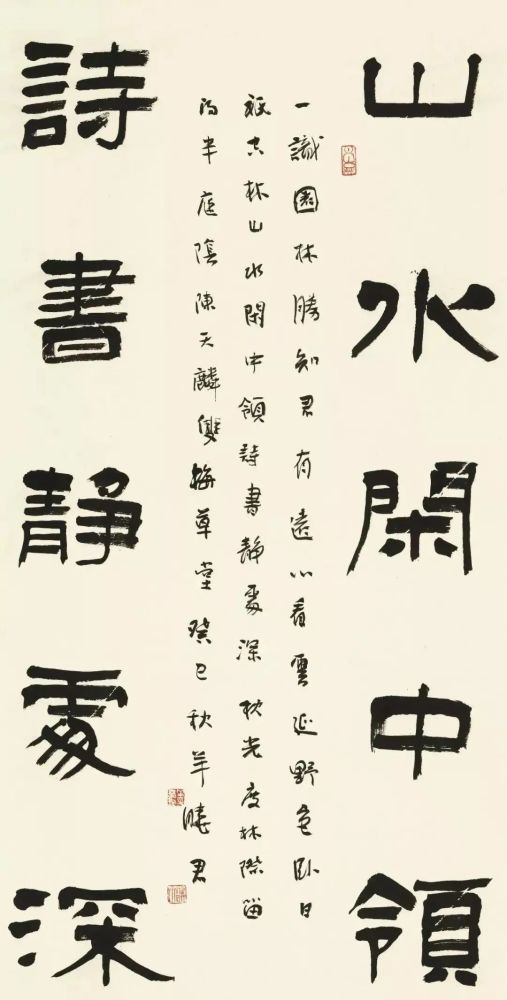 山水閑中領
一識園林勝知君有遠心看雲延野色卧日
山水閑中領詩書靜處深秋光度林際留
得半庭陰陳天麟雙梅草堂癸巳秋羊曉君
詩書靜處深